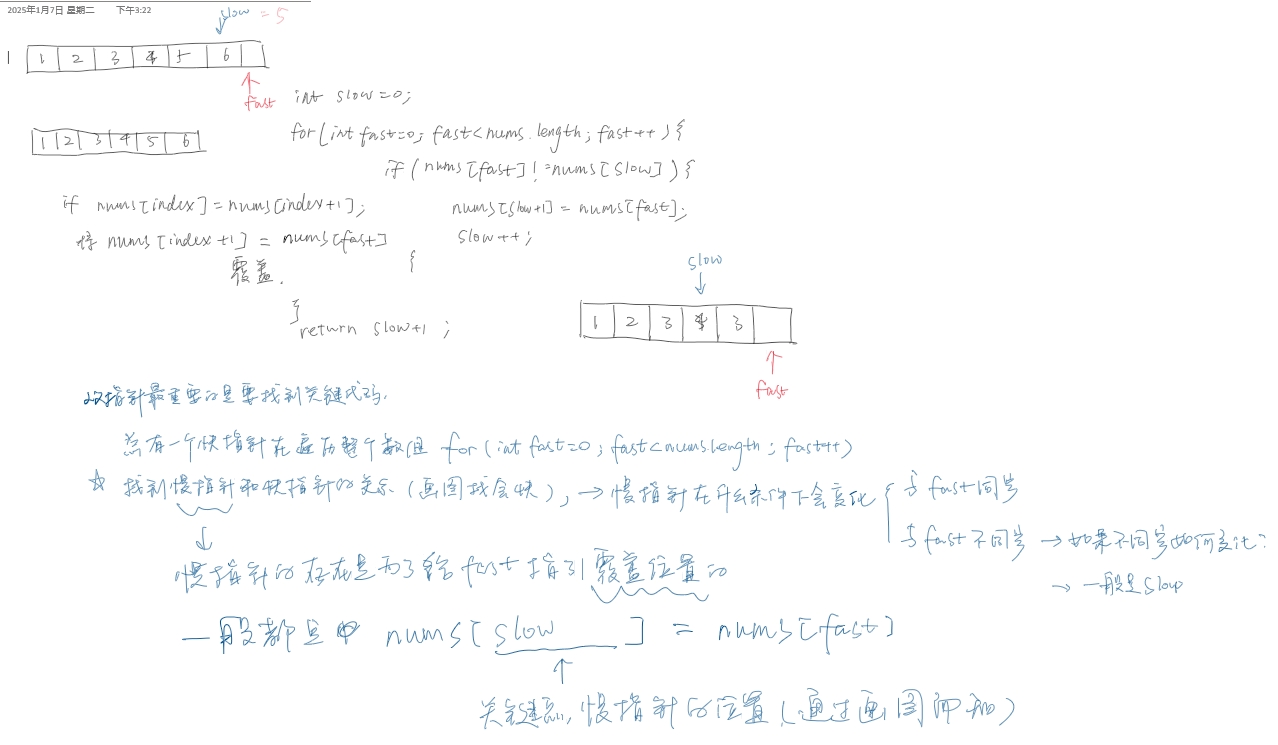 2025年1月7日 星期二 下午3:22
slow = 5
1 1 2 3 4 5 6
fast
int slow=0;
1 2 3 4 5 6
for(int fast=0; fast<nums.length; fast++){
if(nums[fast]!=nums[slow]){
if nums[index]=nums[index+1];
nums[slow+1]=nums[fast];
将 nums[index+1] = nums[fast]
slow++;
覆盖.
}
}
return slow+1;
slow
1 2 3 4 3
fast
双指针最重要的是要找到关键代码.
总有一个快指针在遍历整个数组 for(int fast=0; fast<nums.length; fast++)
☆ 找到慢指针和快指针的关系(画图找会快), → 慢指针在什么条件下会变化 { 与fast同步
与fast不同步 → 如果不同步如何变化?
→ 一般是slow
↓
慢指针的存在是为了给fast指引覆盖位置的
一般都是 nums[slow ] = nums[fast]
↑
关键点, 慢指针的位置(通过画图即知)